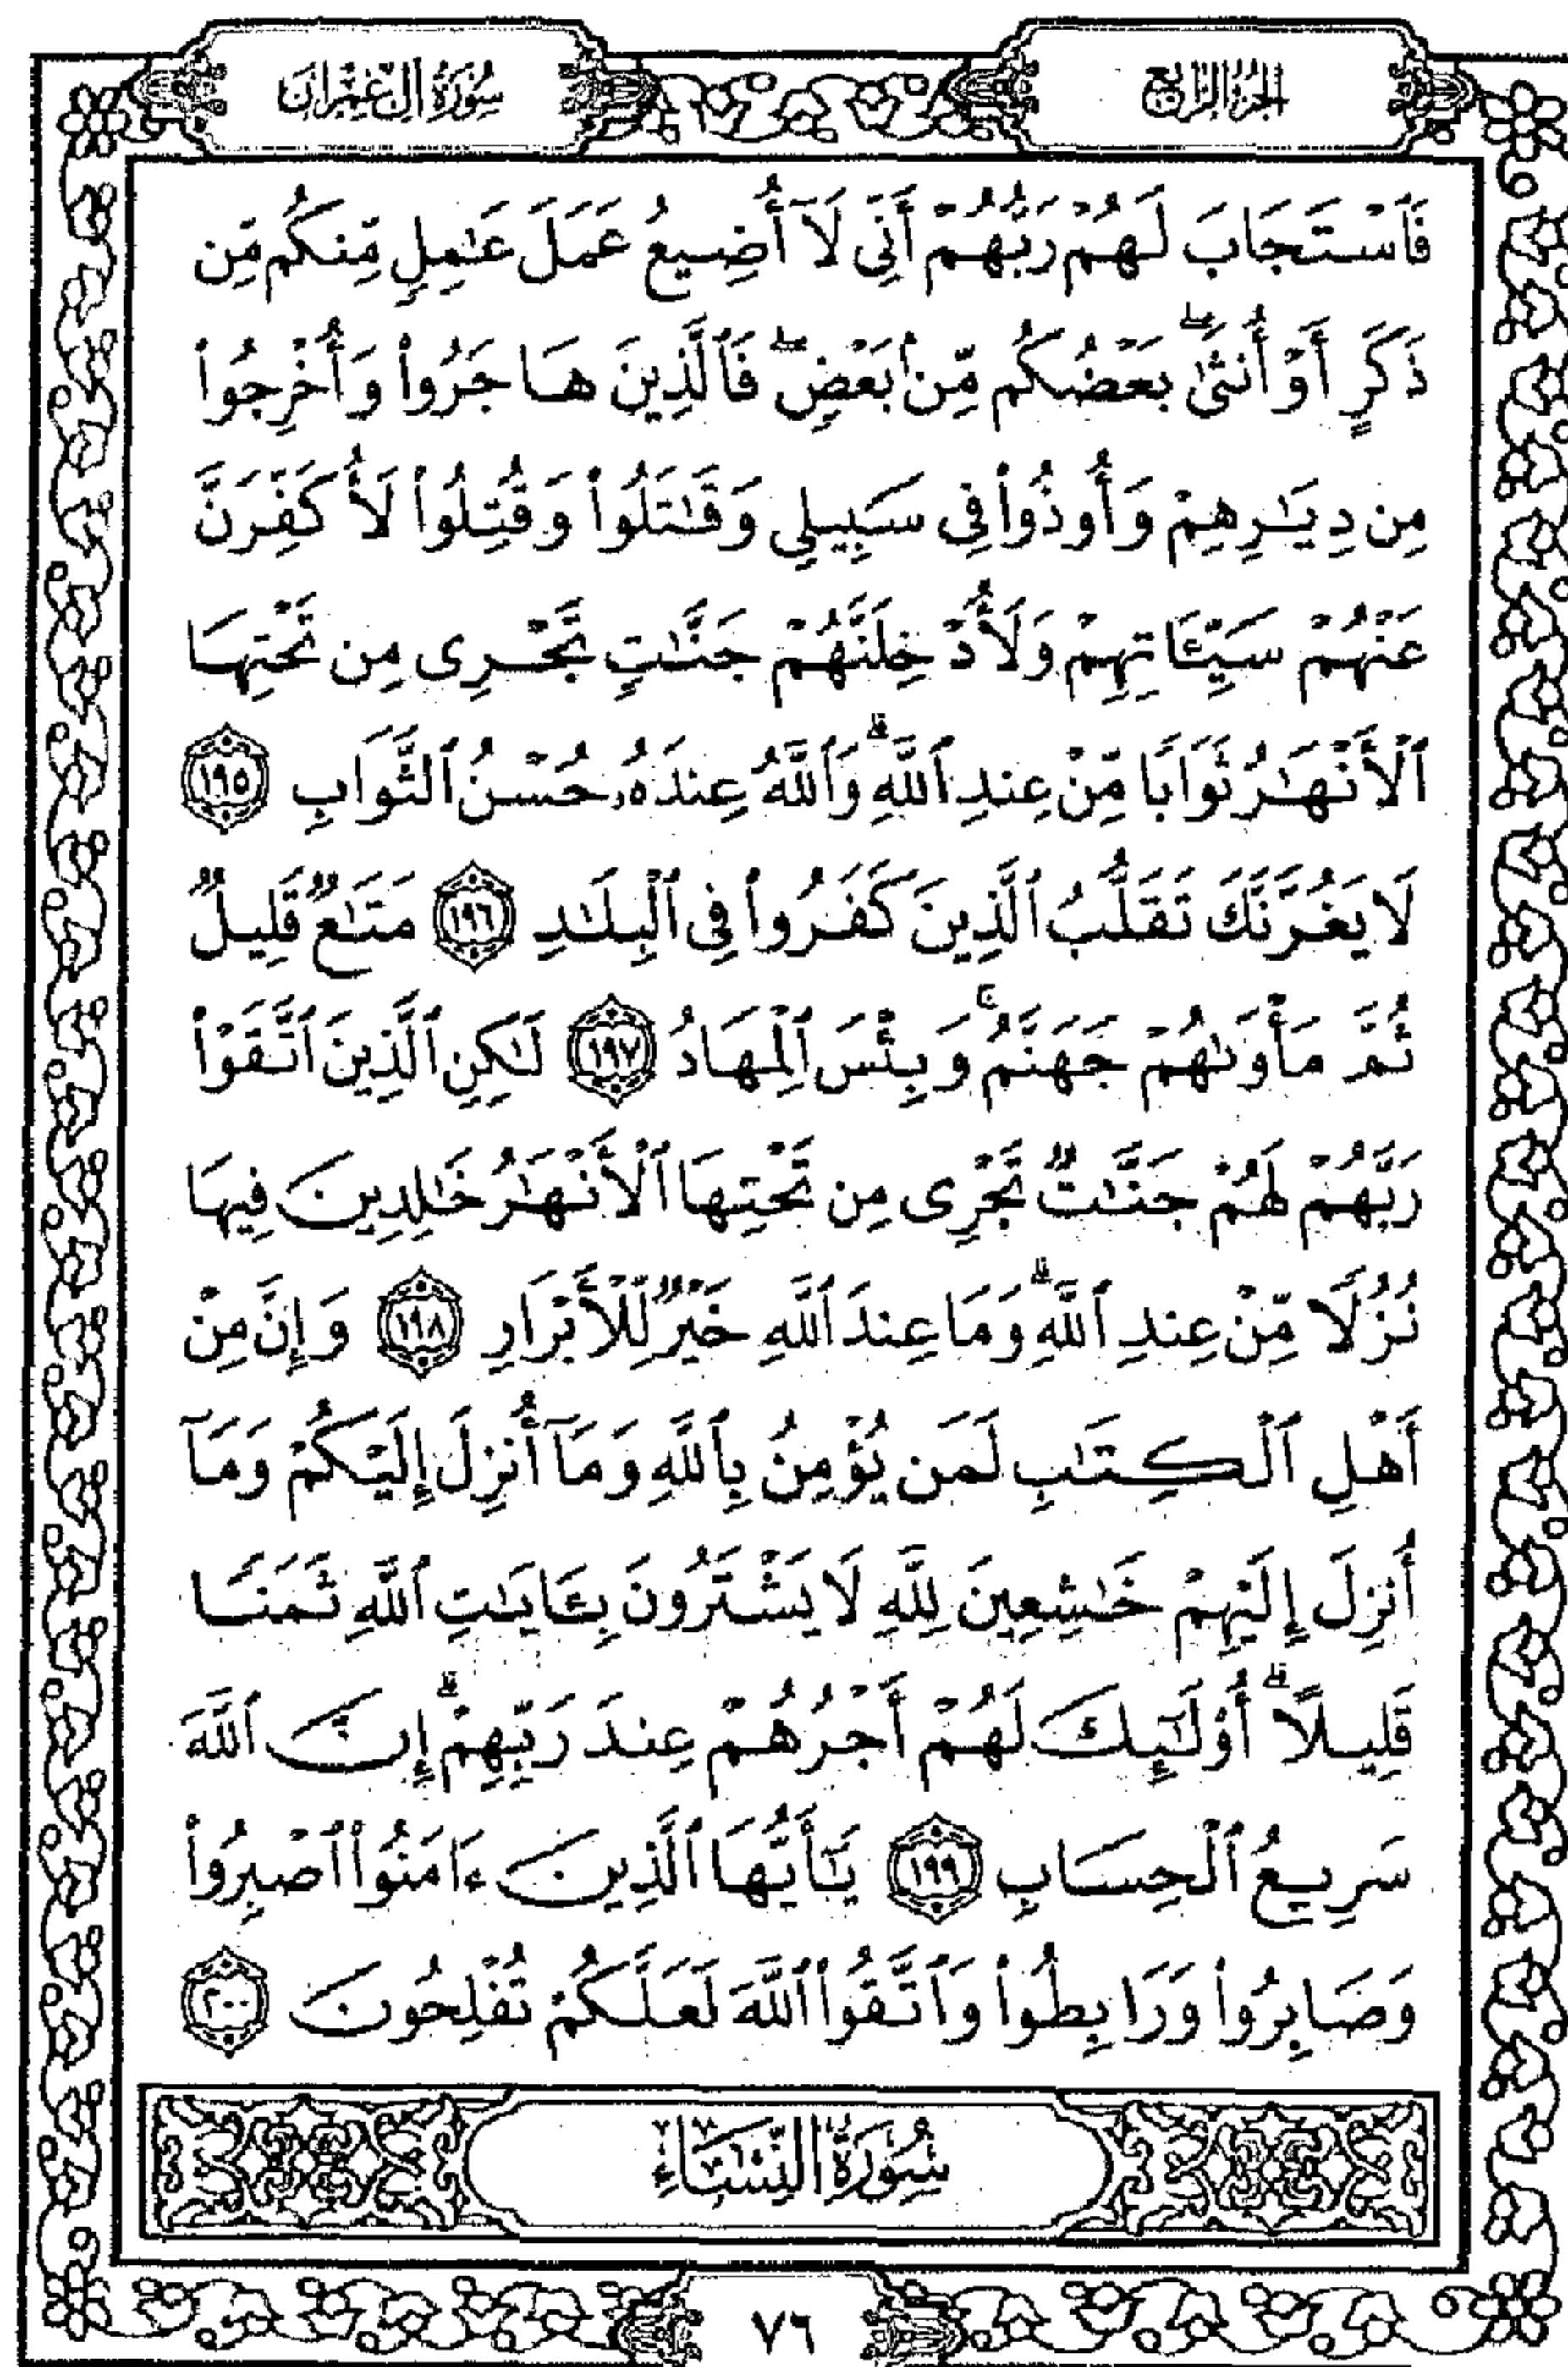 الجزء الرابع
سورة آل عمران
فَٱسْتَجَابَ لَهُمْ رَبُّهُمْ أَنِّى لَآ أُضِيعُ عَمَلَ عَـٰمِلٍ مِّنكُم مِّن
ذَكَرٍ أَوْ أُنثَىٰ ۖ بَعْضُكُم مِّنۢ بَعْضٍ ۖ فَٱلَّذِينَ هَاجَرُوا۟ وَأُخْرِجُوا۟
مِن دِيَـٰرِهِمْ وَأُوذُوا۟ فِى سَبِيلِى وَقَـٰتَلُوا۟ وَقُتِلُوا۟ لَأُكَفِّرَنَّ
عَنْهُمْ سَيِّـَٔاتِهِمْ وَلَأُدْخِلَنَّهُمْ جَنَّـٰتٍ تَجْرِى مِن تَحْتِهَا
ٱلْأَنْهَـٰرُ ثَوَابًا مِّنْ عِندِ ٱللَّهِ ۗ وَٱللَّهُ عِندَهُۥ حُسْنُ ٱلثَّوَابِ ١٩٥
لَا يَغُرَّنَّكَ تَقَلُّبُ ٱلَّذِينَ كَفَرُوا۟ فِى ٱلْبِلَـٰدِ ١٩٦ مَتَـٰعٌ قَلِيلٌ
ثُمَّ مَأْوَىٰهُمْ جَهَنَّمُ ۚ وَبِئْسَ ٱلْمِهَادُ ١٩٧ لَـٰكِنِ ٱلَّذِينَ ٱتَّقَوْا۟
رَبَّهُمْ لَهُمْ جَنَّـٰتٌ تَجْرِى مِن تَحْتِهَا ٱلْأَنْهَـٰرُ خَـٰلِدِينَ فِيهَا
نُزُلًا مِّنْ عِندِ ٱللَّهِ ۗ وَمَا عِندَ ٱللَّهِ خَيْرٌ لِّلْأَبْرَارِ ١٩٨ وَإِنَّ مِنْ
أَهْلِ ٱلْكِتَـٰبِ لَمَن يُؤْمِنُ بِٱللَّهِ وَمَآ أُنزِلَ إِلَيْكُمْ وَمَآ
أُنزِلَ إِلَيْهِمْ خَـٰشِعِينَ لِلَّهِ لَا يَشْتَرُونَ بِـَٔايَـٰتِ ٱللَّهِ ثَمَنًا
قَلِيلًا ۗ أُو۟لَـٰٓئِكَ لَهُمْ أَجْرُهُمْ عِندَ رَبِّهِمْ ۗ إِنَّ ٱللَّهَ
سَرِيعُ ٱلْحِسَابِ ١٩٩ يَـٰٓأَيُّهَا ٱلَّذِينَ ءَامَنُوا۟ ٱصْبِرُوا۟
وَصَابِرُوا۟ وَرَابِطُوا۟ وَٱتَّقُوا۟ ٱللَّهَ لَعَلَّكُمْ تُفْلِحُونَ ٢٠٠
سُورَةُ النِّسَاءِ
٧٦